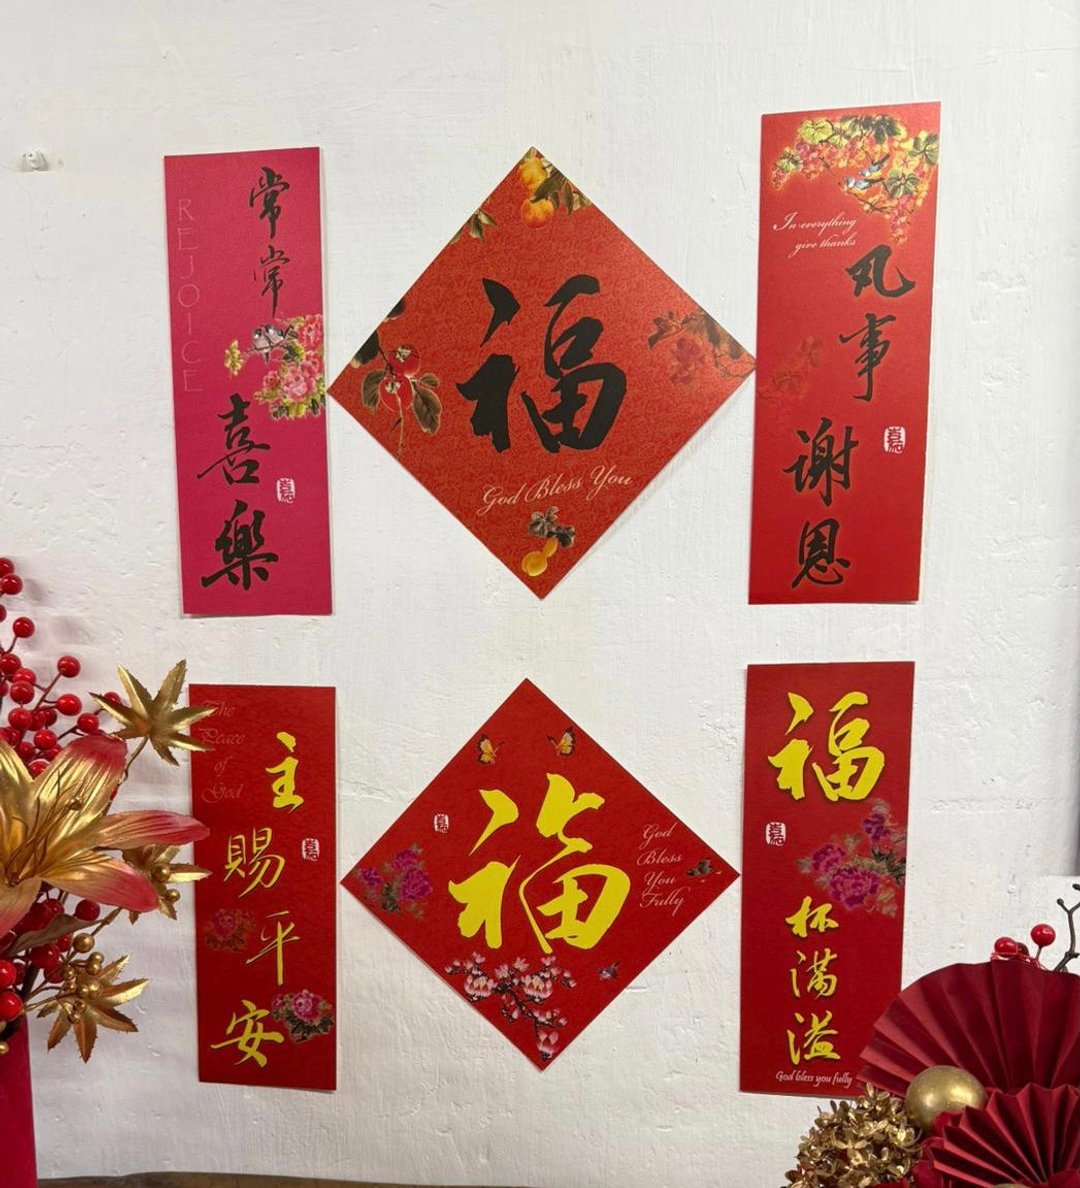 REJOICE
常常喜樂
福
God Bless You
In everything
give thanks
凡事謝恩
The
Peace
of
God
主賜平安
福
God
Bless
You
Fully
福
杯滿溢
God bless you fully